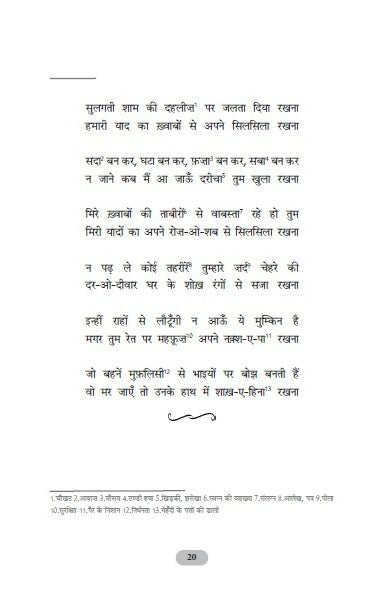 सुलगती शाम की दहलीज़1 पर जलता दिया रखना
हमारी याद का ख़्वाबों से अपने सिलसिला रखना
सदा2 बन कर, घटा बन कर, फ़ज़ा3 बन कर, सबा4 बन कर
न जाने कब मैं आ जाऊँ दरीचा5 तुम खुला रखना
मिरे ख़्वाबों की ताबीरों6 से वाबस्ता7 रहे हो तुम
मिरी यादों का अपने रोज़-ओ-शब से सिलसिला रखना
न पढ़ ले कोई तहरीरें8 तुम्हारे ज़र्द9 चेहरे की
दर-ओ-दीवार घर के शोख़ रंगों से सजा रखना
इन्हीं राहों से लौटूँगी न आऊँ ये मुम्किन है
मगर तुम रेत पर महफ़ूज़10 अपने नक़्श-ए-पा11 रखना
जो बहनें मुफ़लिसी12 से भाइयों पर बोझ बनती हैं
वो मर जाएँ तो उनके हाथ में शाख़-ए-हिना13 रखना
1.चौखट 2.आवाज़ 3.मौसम 4.ठण्डी हवा 5.खिड़की, झरोखा 6.स्वप्न की व्याख्या 7.संलग्न 8.आलेख, पत्र 9.पीला
10.सुरक्षित 11.पैर के निशान 12.निर्धनता 13.मेहँदी के पत्तों की डाली
20